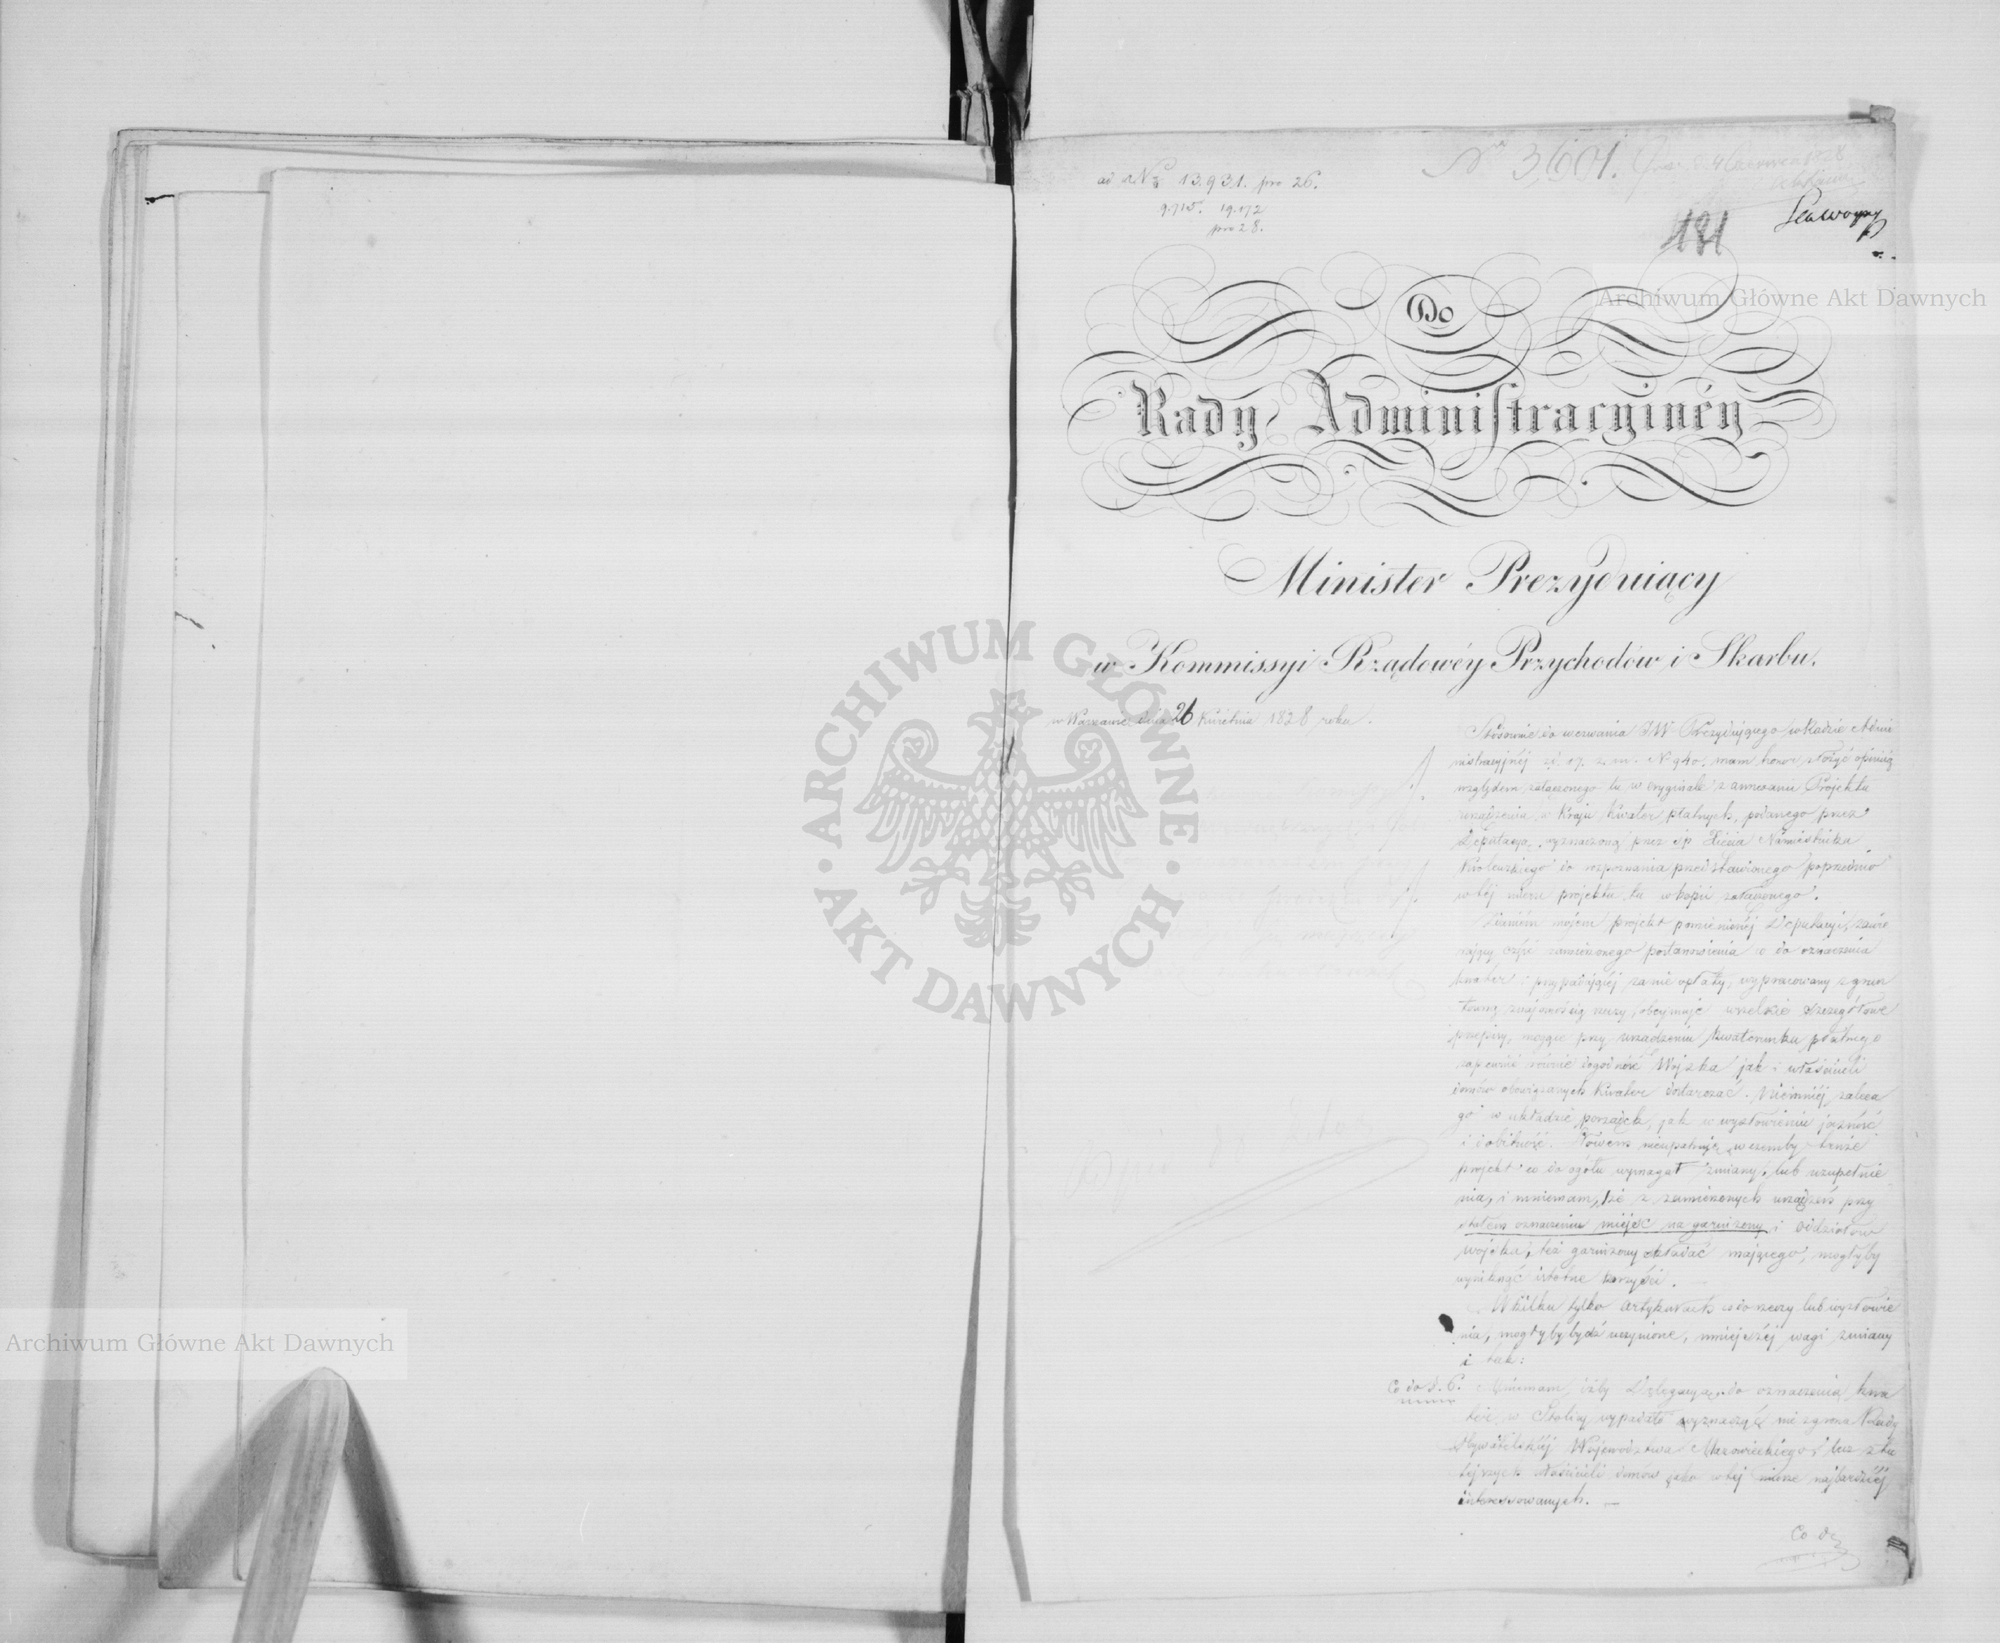 ad Nr 13.931. pro 26.
9.715. 19.172
pro 28.
Nr 3,601.
181
Do
Rady Administracyinéy
Minister Prezyduiący
w Kommissyi Rządowéy Przychodów i Skarbu.
w Warszawie dnia 26 Kwietnia 1828 roku.
Stosownie do wezwania JW Prezydującego w Radzie Admi
nistracyjnéj N 940. mam honor złożyć opinią
względem załączonego tu w oryginale Projektu
urządzenia w Kraju Kwater płatnych, podanego przez
Deputacyą, wyznaczoną przez śp Xięcia Namiestnika
Królewskiego do rozpoznania przedstawionego poprzednio
w téj mierze projektu tu w kopii załączonego.
Zdaniem mojem projekt pomienionéj Deputacyi, zawie
rający część zamierzonego postanowienia co do oznaczenia
kwater i przypadającéj za nie opłaty, wypracowany z grun
towną znajomością rzeczy, obejmuje wszelkie szczegółowe
przepisy, mogące przy urządzeniu kwaterunku płatnego
zapewnić równie dogodność Wojska jak i właścicieli
domów obowiązanych kwater dostarczać. Niemniéj zaleca
go w układzie porządek, jak w wysłowieniu jasność
i dobitność. w czemby tenże
projekt co do ogółu wymagał zmiany, lub uzupełnie
nia, i mniemam, że z zamierzonych urządzeń przy
stałem oznaczeniu miejsc na garnizony i oddziałów
wojska, też garnizony składać mającego, mogłyby
wyniknąć istotne korzyści.
W kilku tylko artykułach co do rzeczy lub wysłowie
nia, mogłyby bydź uczynione, mniejszéj wagi zmiany
i tak:
Co do §. 6. Mniemam, iżby Delegacyą do oznaczenia kwa
ter w Stolicy wypadało wyznaczyć nie z grona Rady
Obywatelskiéj Województwa Mazowieckiego, lecz z tu
tejszych Właścicieli domów jako w téj mierze najbardziéj
interessowanych.
Co do
Archiwum Główne Akt Dawnych
Archiwum Główne Akt Dawnych
ARCHIWUM GŁÓWNE · AKT DAWNYCH ·